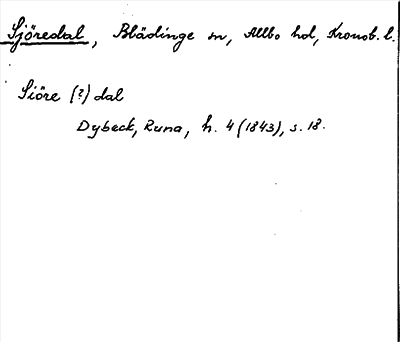 Sjöredal, Blädinge sn, Allbo hd, Kronob. l.
Siöre (?) dal
Dybeck, Runa, h. 4 (1843), s. 18.